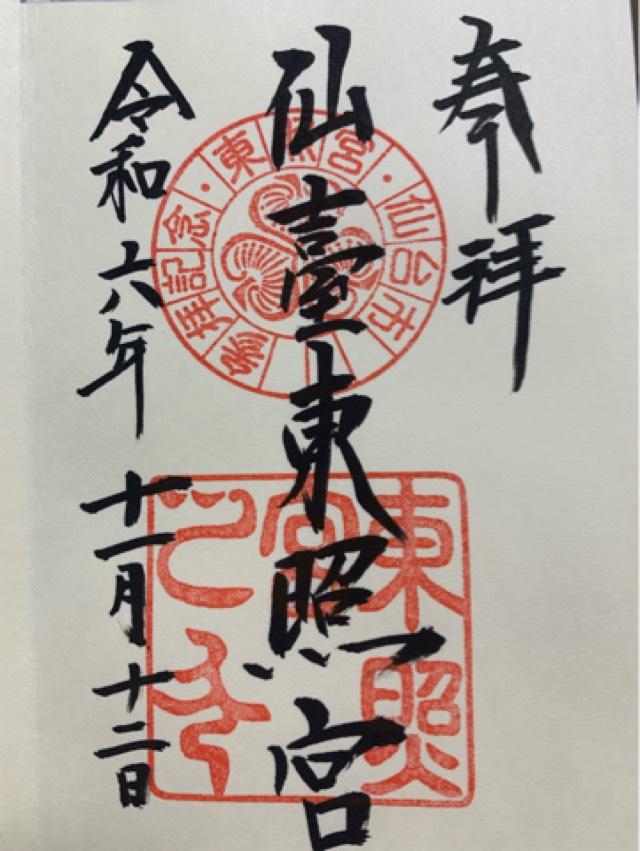 奉拝
仙臺東照宮
令和六年十一月十二日
東照宮・仙台市・参拝記念
東照宮